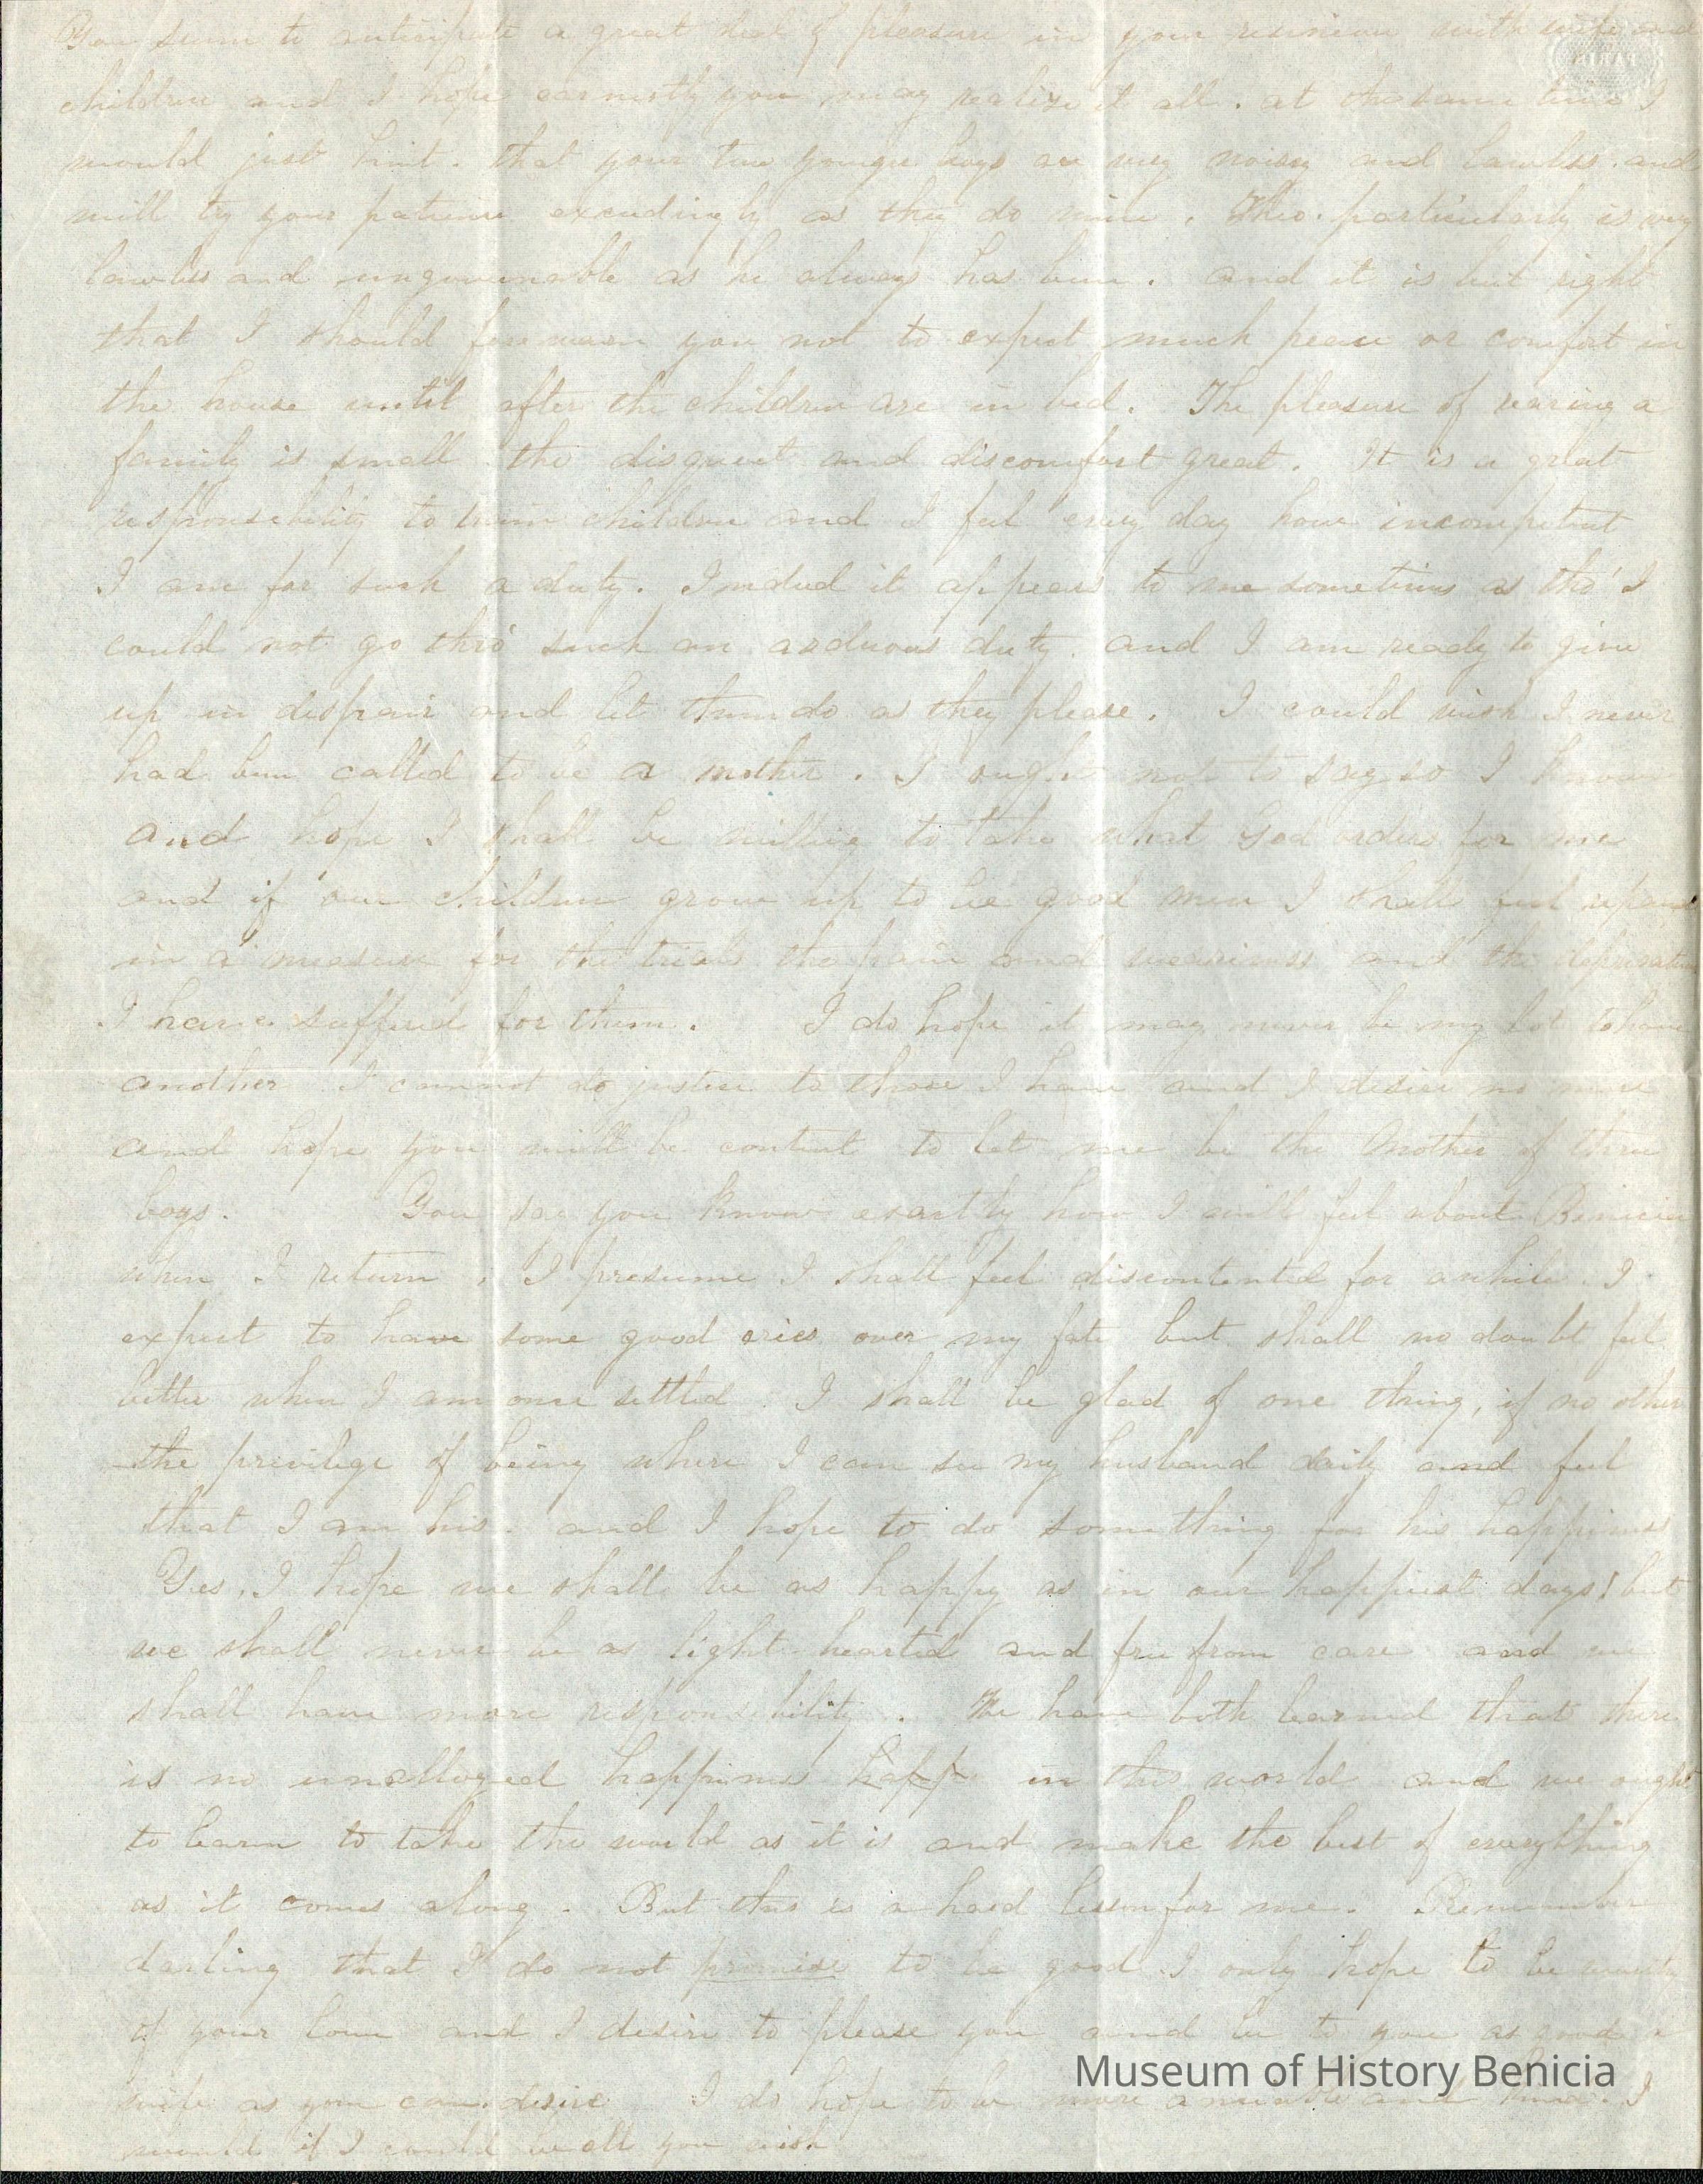 You seem to anticipate a great deal of pleasure in your reunion with wife and
PARIS
children and I hope earnestly you may realize it all. at the same time I
would just hint. that your two younger boys are very noisy and lawless. and
will try your patience exceedingly as they do mine. Theo. particularly is very
lawless and ungovernable as he always has been. and it is but right
that I should forewarn you not to expect much peace or comfort in
the house until after the children are in bed. The pleasure of rearing a
family is small the disquiet and discomfort great. It is a great
responsibility to train children and I feel every day how incompetent
I am for such a duty. Indeed it appears to me sometimes as tho' I
could not go thro' such an arduous duty and I am ready to give
up in despair and let them do as they please. I could wish I never
had been called to be a mother. I ought not to say so I know
and hope I shall be willing to take what God orders for me
and if our children grow up to be good men I shall feel repaid
in a measure for the trials the pain and weariness and the deprivation
I have suffered for them. I do hope it may never be my lot to have
another I cannot do justice to those I have and I desire no more
and hope you will be content to let me be the Mother of three
boys. You say you know exactly how I will feel about Benicia
when I return. I presume I shall feel discontented for awhile. I
expect to have some good cries over my fate but shall no doubt feel
better when I am once settled. I shall be glad of one thing, if no other
the privilege of being where I can see my husband daily and feel
that I am his. and I hope to do something for his happiness
Yes, I hope we shall be as happy as in our happiest days! but
we shall never be as light hearted and free from care and we
shall have more responsibility. We have both learned that there
is no unalloyed happiness happ in this world and we ought
to learn to take the world as it is and make the best of everything
as it comes along. But this is a hard lesson for me. Remember
darling that I do not promise to be good I only hope to be worthy
of your love and I desire to please you and be to you as good a
wife as you can desire I do hope to be more amiable and kind. I
would if I could be all you wish
Museum of History Benicia